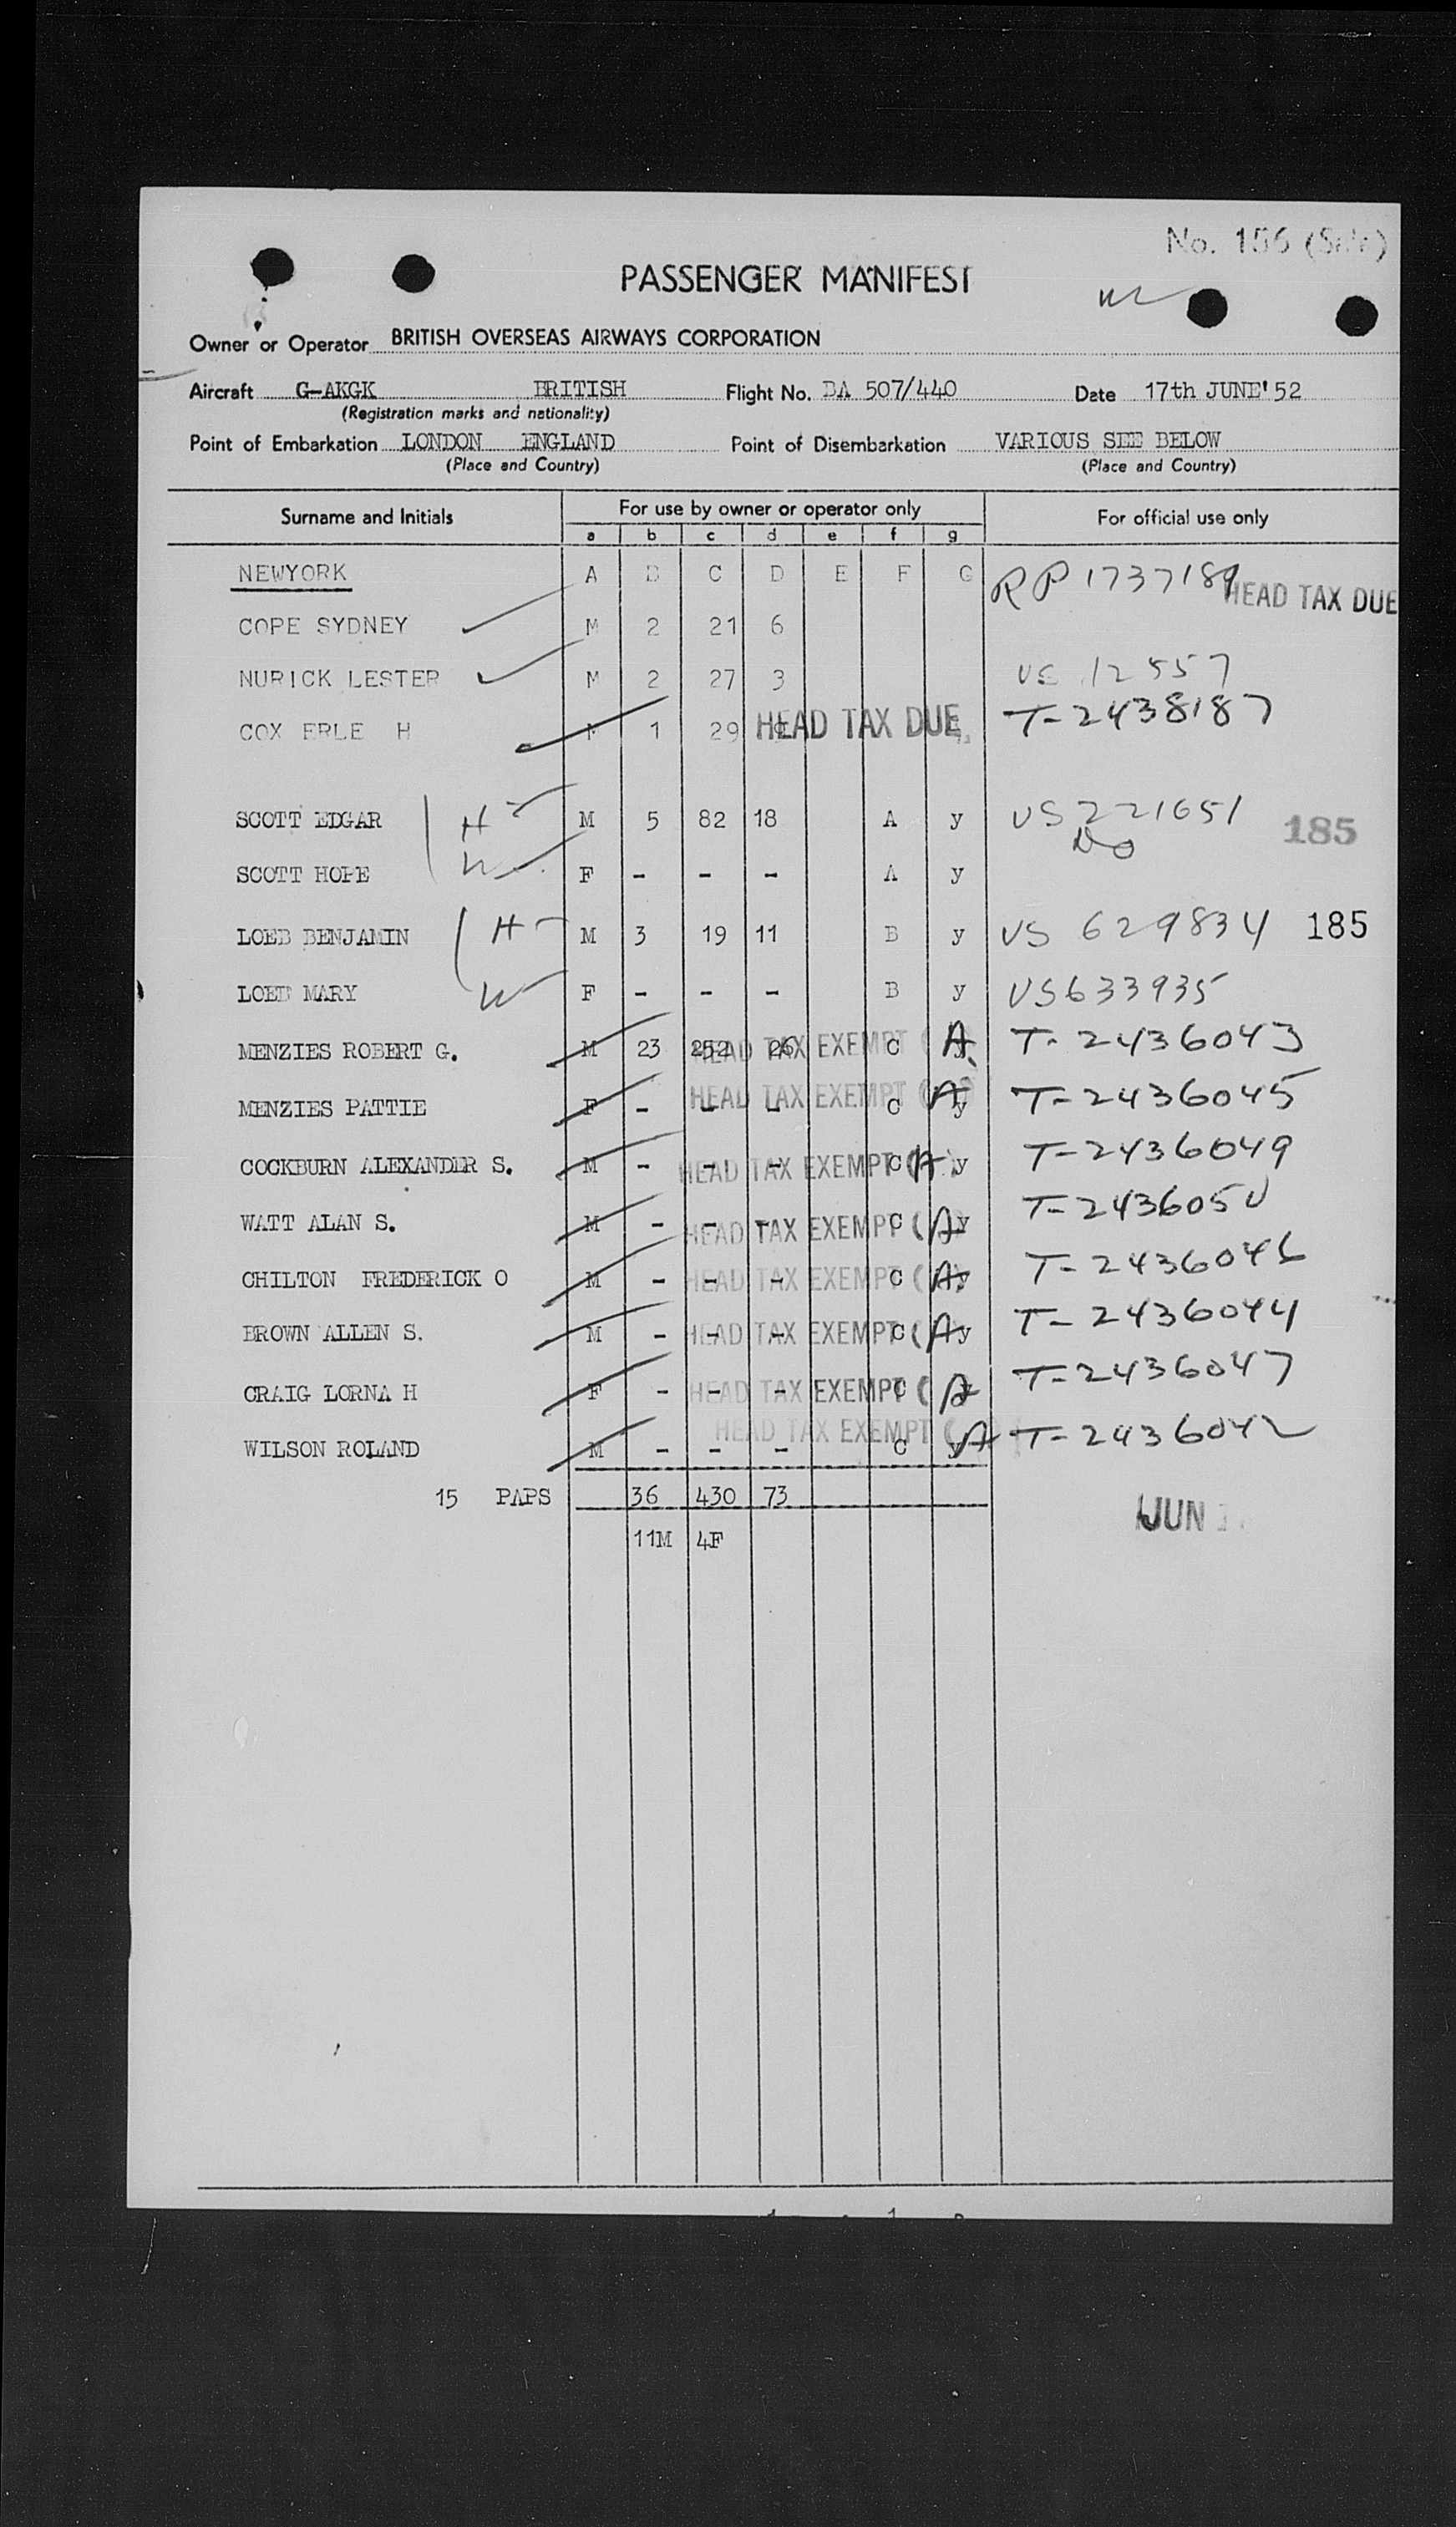 No. 156
PASSENGER MANIFEST
Owner or Operator BRITISH OVERSEAS AIRWAYS CORPORATION
Aircraft G-AKGK BRITISH Flight No. BA 507/440 Date 17th JUNE'52
(Registration marks and nationality)
Point of Embarkation LONDON ENGLAND Point of Disembarkation VARIOUS SEE BELOW
(Place and Country) (Place and Country)
Surname and Initials For use by owner or operator only For official use only
a b c d e f g
NEWYORK A B C D E F G RP 1737189 HEAD TAX DUE
COPE SYDNEY M 2 21 6
NURICK LESTER M 2 27 3 US 12557
COX ERLE H M 1 29 9 HEAD TAX DUE T-2438187
SCOTT EDGAR H M 5 82 18 A y US 221651 185
Do
SCOTT HOPE W F - - - A y
LOEB BENJAMIN H M 3 19 11 B y US 629834 185
LOEB MARY W F - - - B y US633935
MENZIES ROBERT G. M 23 252 26 HEAD TAX EXEMPT C A y T-2436043
MENZIES PATTIE F - - - HEAD TAX EXEMPT ( C A y T-2436045
COCKBURN ALEXANDER S. M - - - HEAD TAX EXEMPT C (A) y T-2436049
WATT ALAN S. M - - - HEAD TAX EXEMPT C (A) y T-2436050
CHILTON FREDERICK O M - - - HEAD TAX EXEMPT C (A) y T-2436046
BROWN ALLEN S. M - - - HEAD TAX EXEMPT C (A) y T-2436044
CRAIG LORNA H F - - - HEAD TAX EXEMPT C ( A y T-2436047
WILSON ROLAND M - - - HEAD TAX EXEMPT C ( y A T-2436042
15 PAPS 36 430 73
JUN
11M 4F